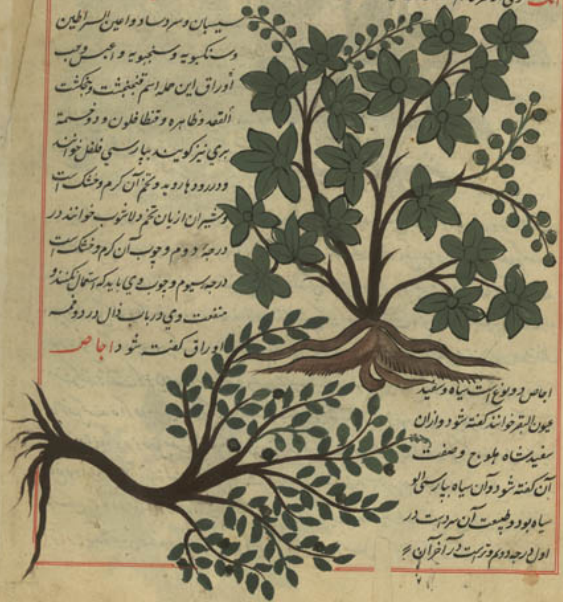 سیسبان و سرد ساد و اعین السراطین
و سنکبویه و سنجبویه و
اوراق این جمله اسم فنجنکشت
و ظاهره و قنطافلون و
بری نیز کویند بپارسی فلفل خوانند
و در رودها روید و تخم آن کرم و خشک است
و شیران از بان تخم دلاشوب خوانند در
درجهٔ دوم و چوب آن کرم و خشک است
درجه سیوم و چوب وی باید که استعمال نکنند و
منفعت وی در باب ذال در ذو خمسه
اوراق کفته شود اجاص
اجاص دو نوع است سیاه و سفید
عیون البقر خوانند کفته شود و ازان
سفید شاه بلوج و صفت
آن کفته شود و آن سیاه بپارسی الو
سیاه بود و طبیعت آن سردست در
اول درجه دوم و ترست در آخر آن